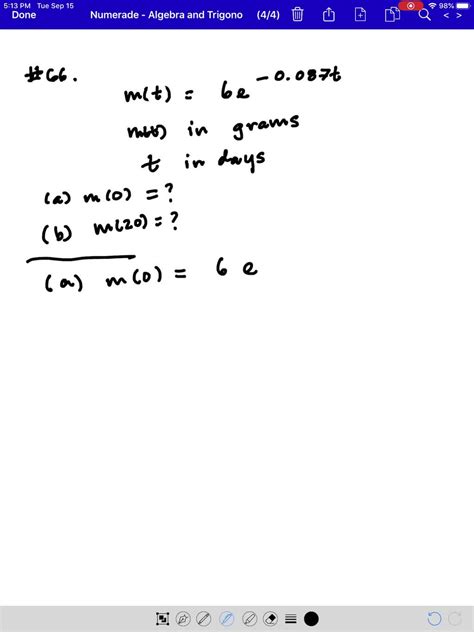 5:13 PM Tue Sep 15 98%
Done Numerade - Algebra and Trigono (4/4)
#66.
m(t) = 6e^-0.087t
m(t) in grams
t in days
(a) m(0) = ?
(b) m(20) = ?
(a) m(0) = 6 e